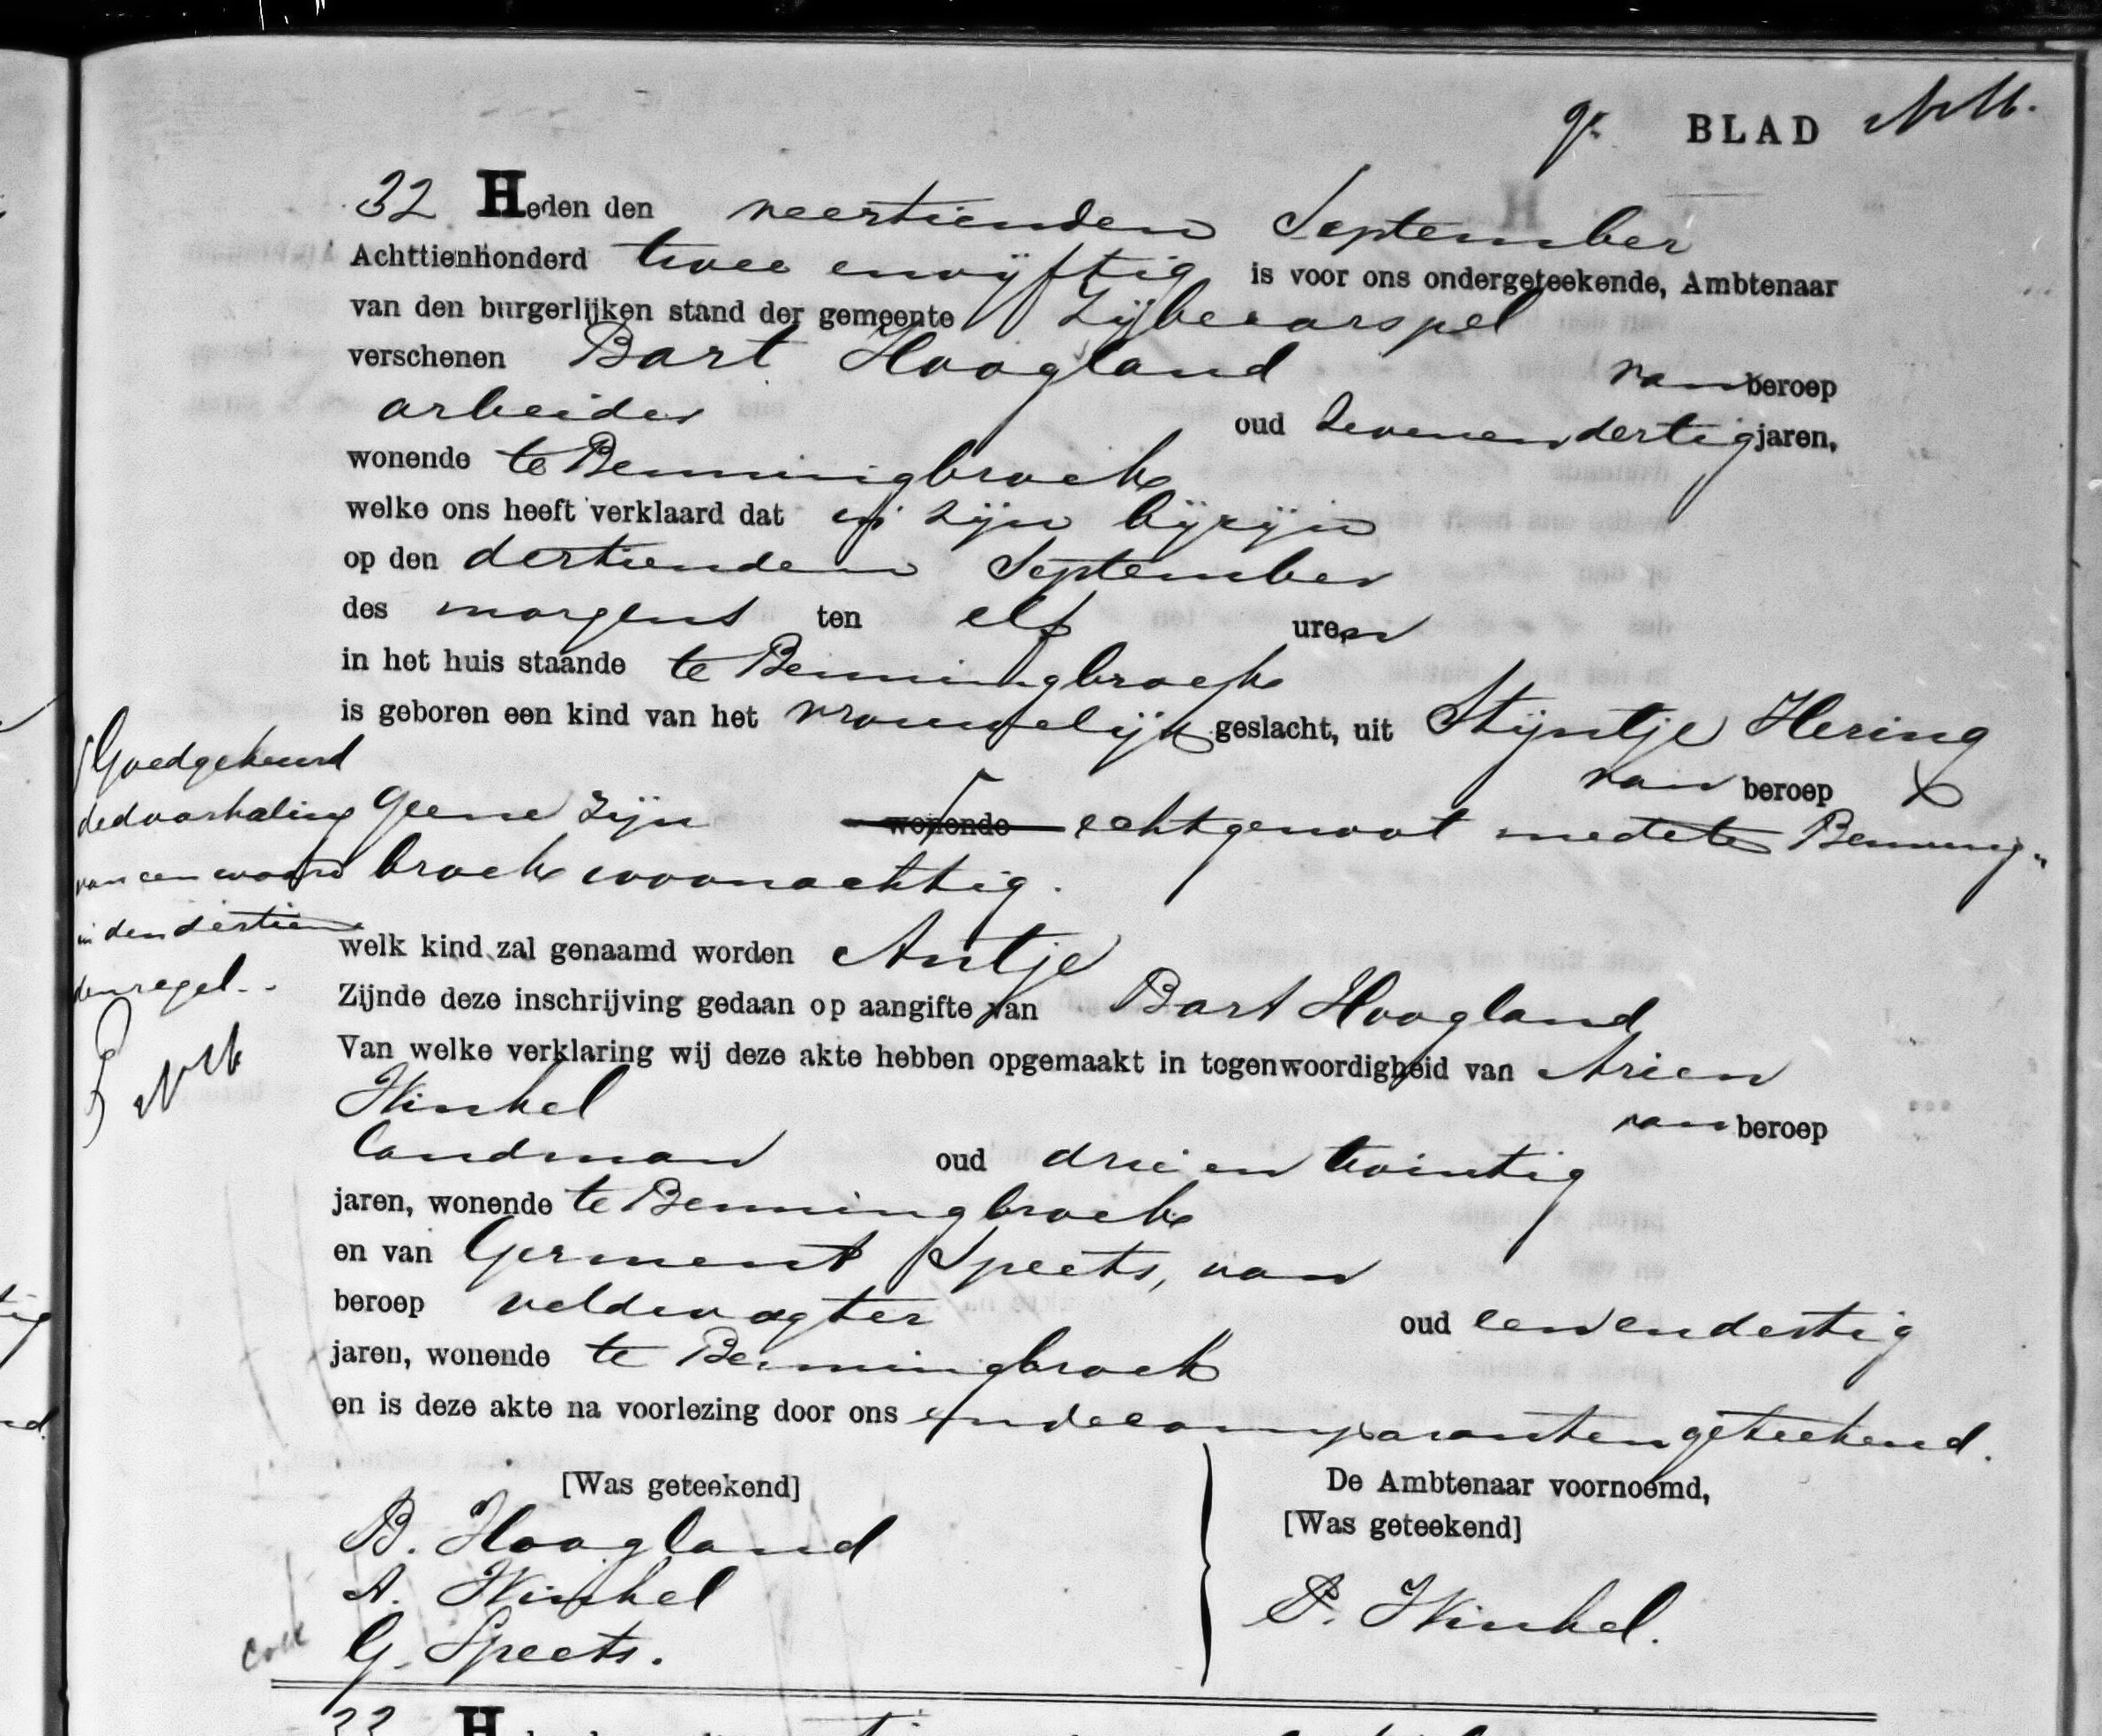 9e BLAD
32 Heden den veertienden September
Achttienhonderd twee envijftig is voor ons ondergeteekende, Ambtenaar
van den burgerlijken stand der gemeente Sijbecarspel
verschenen Bart Hoogland van beroep
arbeider oud zevenendertig jaren,
wonende te Benningbroek
welke ons heeft verklaard dat in zijn bijzijn
op den dertienden September
des morgens ten elf uren
in het huis staande te Benningbroek
is geboren een kind van het vrouwelijk geslacht, uit Stijntje Hering
van beroep
geene zijn wonende echtgenoot mede te Benning„
broek woonachtig.
Goedgekeurd
de doorhaling
van een woord
in den dertien
den regel.
welk kind zal genaamd worden Antje
Zijnde deze inschrijving gedaan op aangifte van Bart Hoogland
Van welke verklaring wij deze akte hebben opgemaakt in tegenwoordigheid van Arien
Winkel van beroep
landman oud drie en twintig
jaren, wonende te Benningbroek
en van Germent Speets, van
beroep veldwagter oud eenendertig
jaren, wonende te Benningbroek
en is deze akte na voorlezing door ons en de comparanten geteekend.
[Was geteekend] De Ambtenaar voornoemd,
B. Hoogland [Was geteekend]
A. Winkel P. Winkel.
G. Speets.
33 H